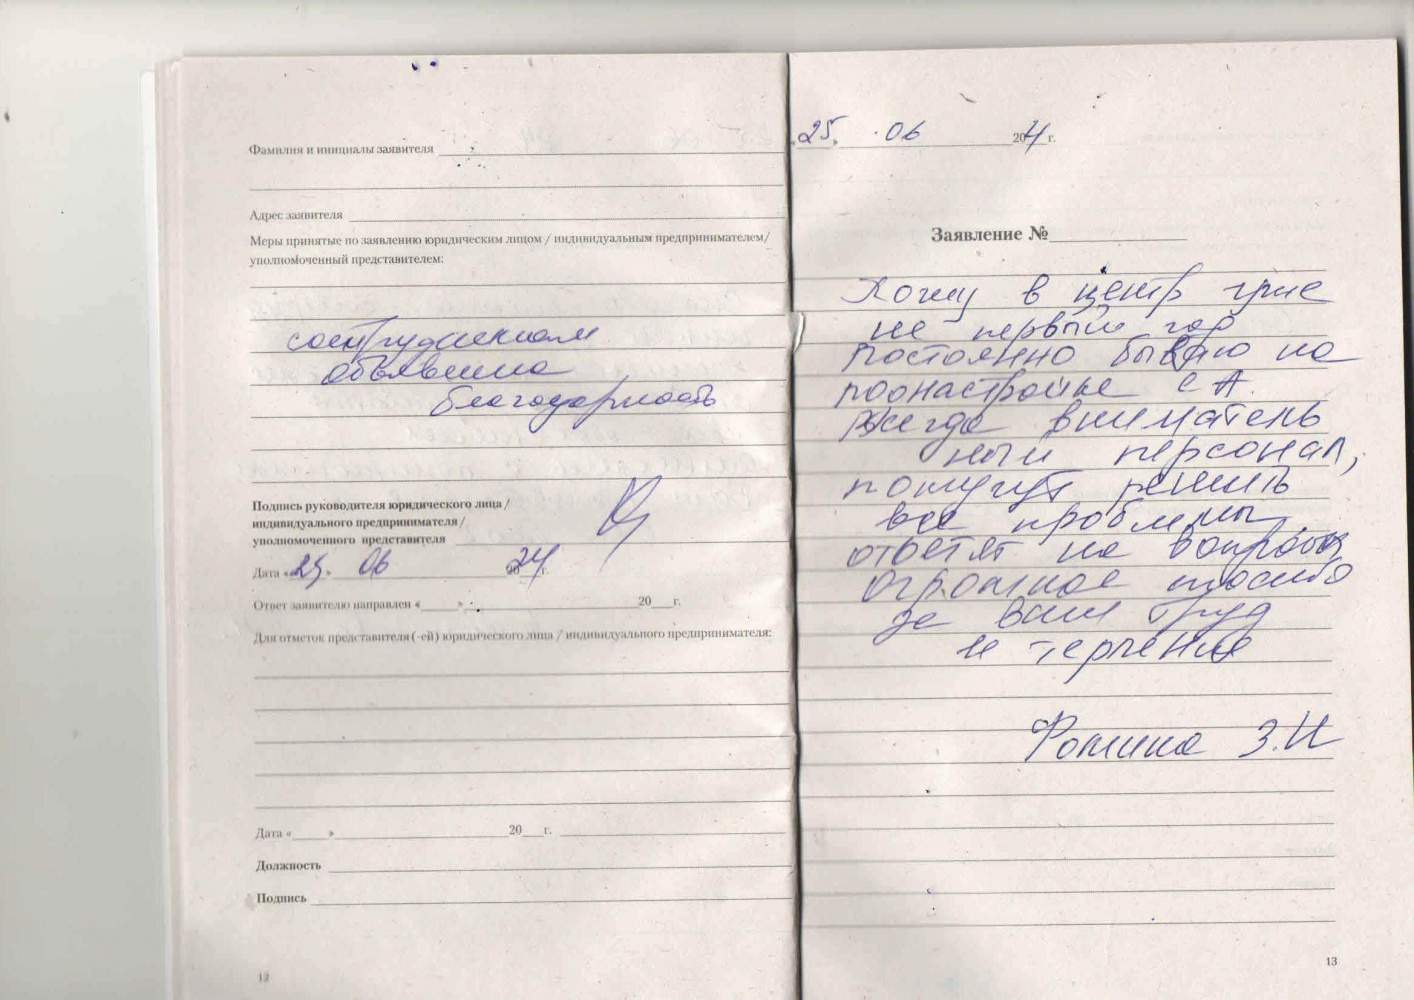 Фамилия и инициалы заявителя
Адрес заявителя
Меры принятые по заявлению юридическим лицом / индивидуальным предпринимателем/
уполномоченный представителем:
сотрудникам
объявлена
благодарность
Подпись руководителя юридического лица/
индивидуального предпринимателя/
уполномоченного представителя
Дата «25» 06 2024 г.
Ответ заявителю направлен «____»____ 20__г.
Для отметок представителя (-ей) юридического лица / индивидуального предпринимателя:
Дата «____»____ 20__г.
Должность
Подпись
12
«25» 06 20 г.
Заявление №
Хожу в центр
не первый год
постоянно бываю на
Всегда вниматель
ный персонал,
помогут решить
все проблемы
ответят на вопросы
огромное спасибо
за ваш труд
и терпение
Фомина З.И
13